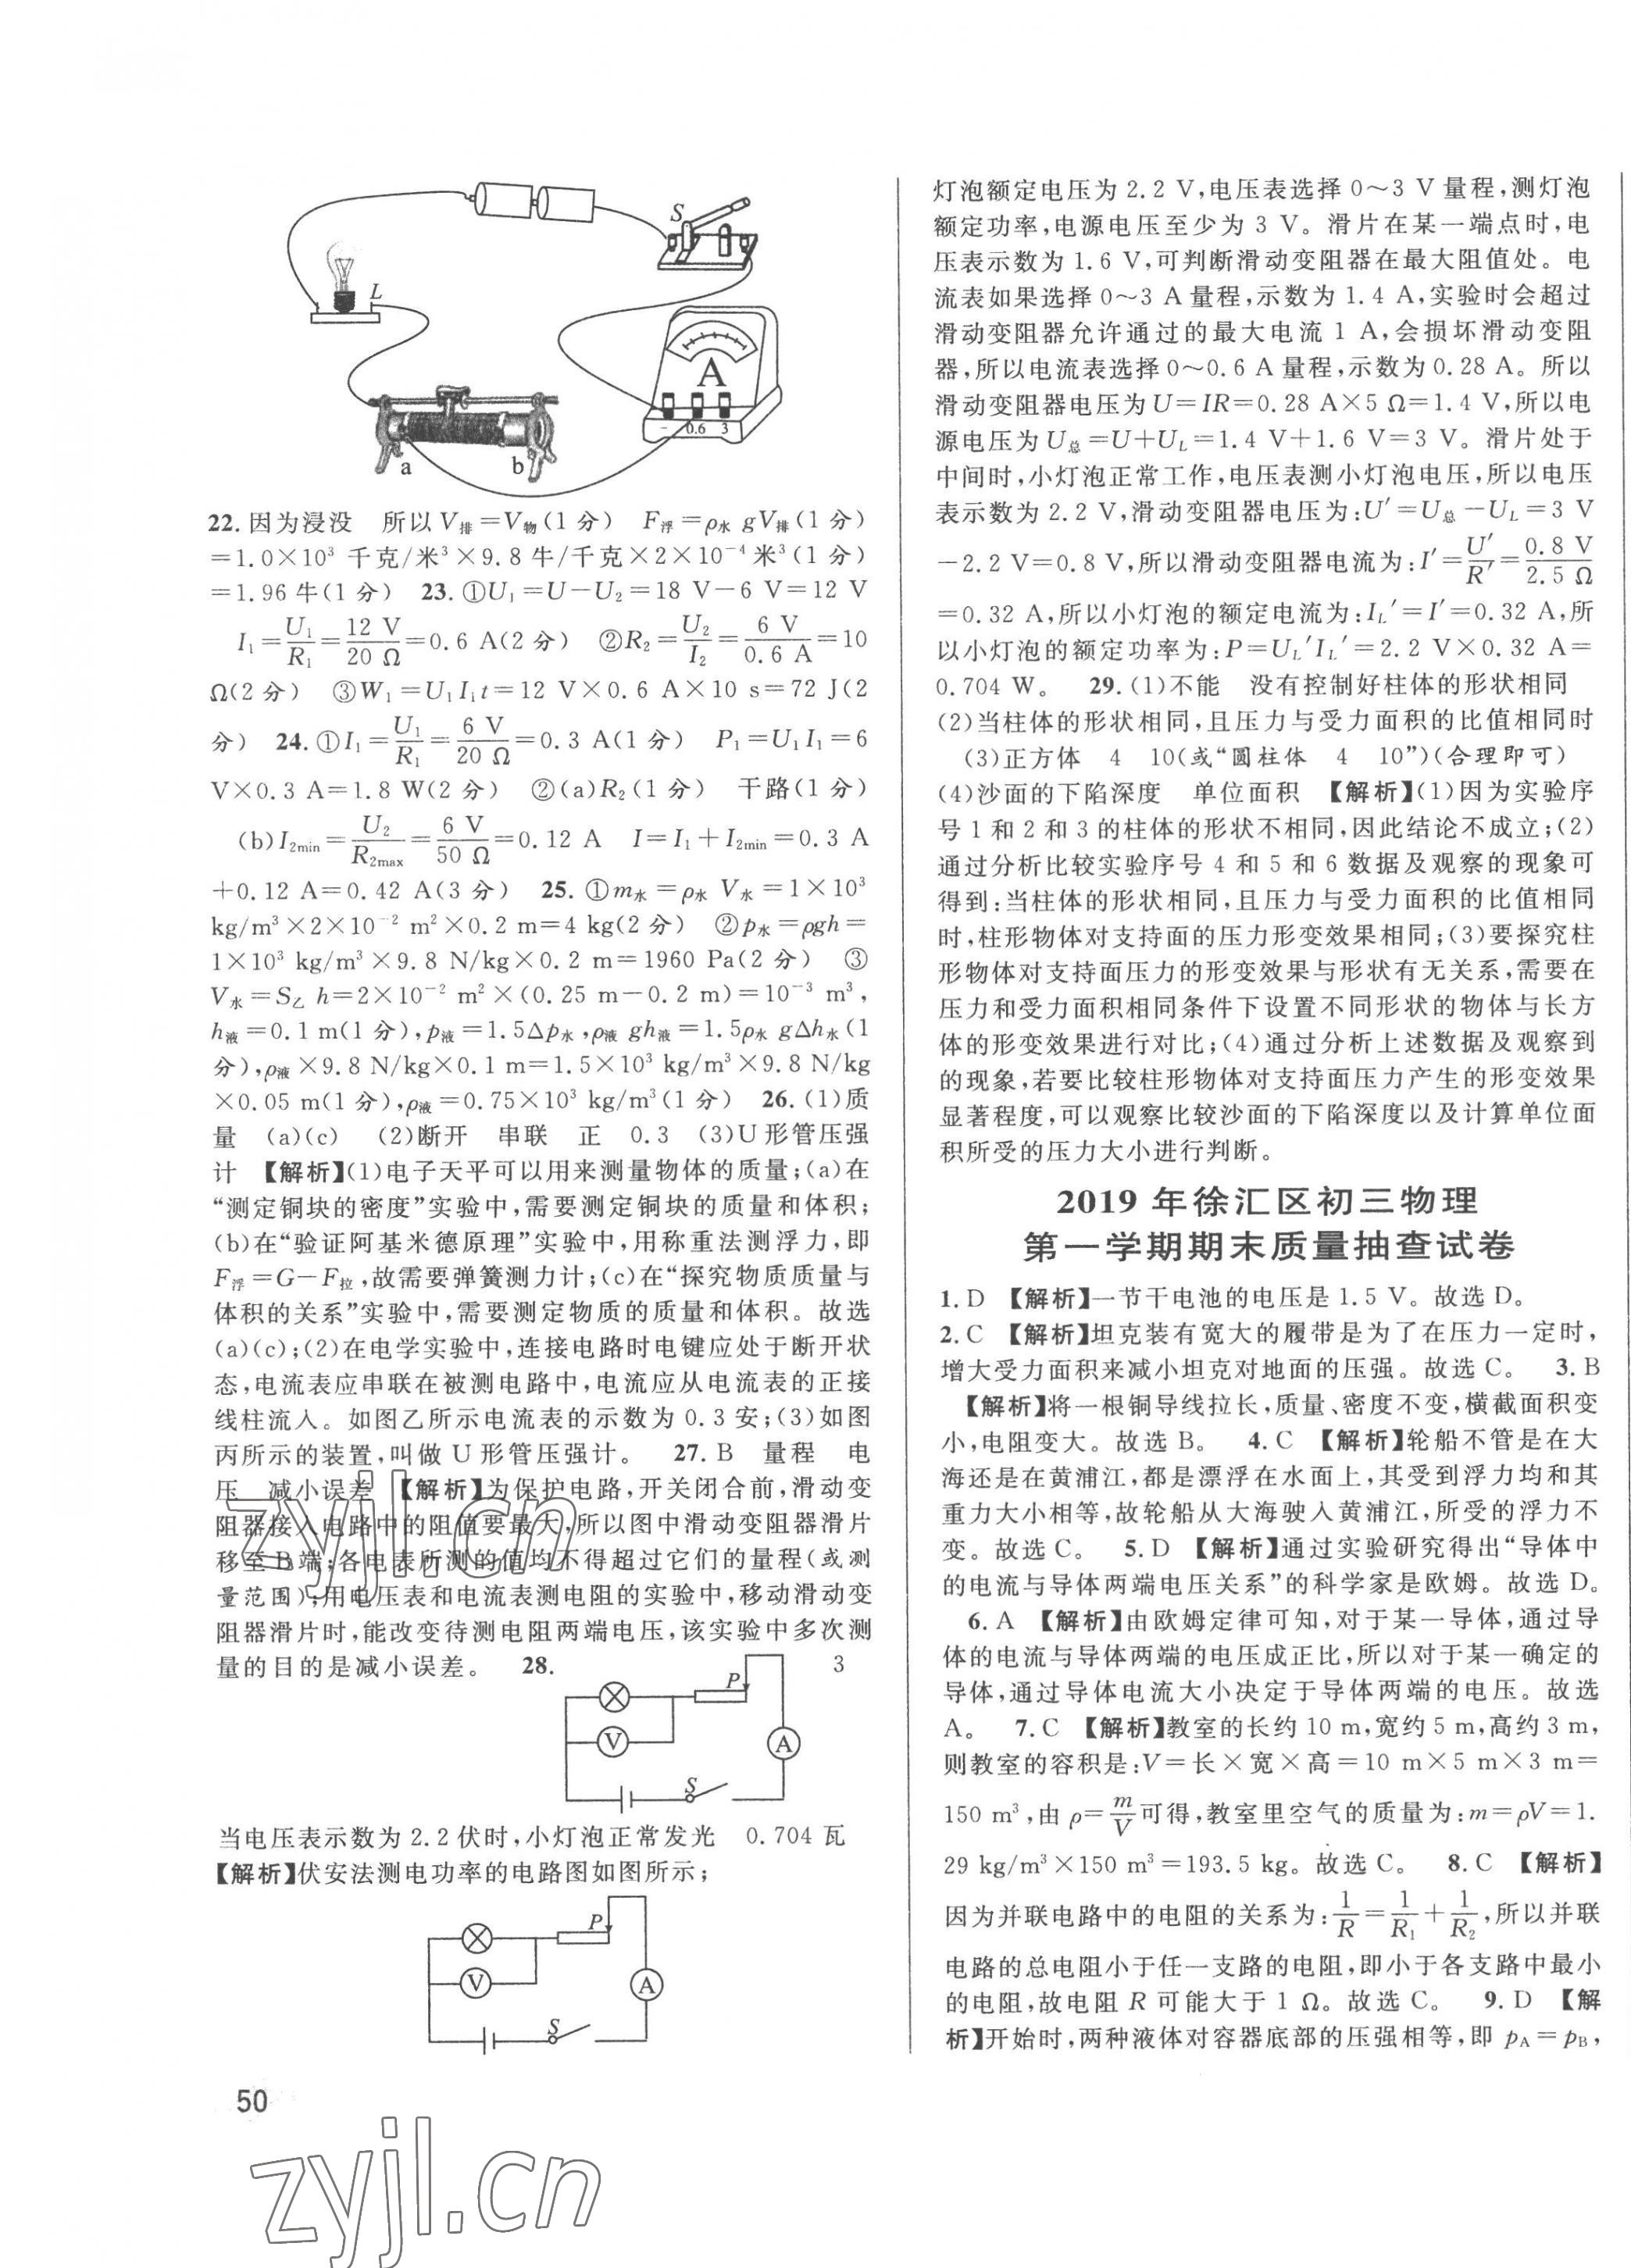 S
L
A
- 0.6 3
a
b
22. 因为浸没 所以V排=V物(1分) F浮=ρ水gV排(1分)
=1.0×10³ 千克/米³×9.8牛/千克×2×10⁻⁴米³(1分)
=1.96牛(1分) 23. ①U₁=U-U₂=18 V-6 V=12 V
I₁=U₁/R₁=12 V/20 Ω=0.6 A(2分) ②R₂=U₂/I₂=6 V/0.6 A=10
Ω(2分) ③W₁=U₁I₁t=12 V×0.6 A×10 s=72 J(2
分) 24. ①I₁=U₁/R₁=6 V/20 Ω=0.3 A(1分) P₁=U₁I₁=6
V×0.3 A=1.8 W(2分) ②(a)R₂(1分) 干路(1分)
(b)I₂min=U₂/R₂max=6 V/50 Ω=0.12 A I=I₁+I₂min=0.3 A
+0.12 A=0.42 A(3分) 25. ①m水=ρ水V水=1×10³
kg/m³×2×10⁻² m²×0.2 m=4 kg(2分) ②p水=ρgh=
1×10³ kg/m³×9.8 N/kg×0.2 m=1960 Pa(2分) ③
V水=S乙h=2×10⁻² m²×(0.25 m-0.2 m)=10⁻³ m³,
h液=0.1 m(1分),p液=1.5Δp水,ρ液gh液=1.5ρ水gΔh水(1
分),ρ液×9.8 N/kg×0.1 m=1.5×10³ kg/m³×9.8 N/kg
×0.05 m(1分),ρ液=0.75×10³ kg/m³(1分) 26. (1)质
量 (a)(c) (2)断开 串联 正 0.3 (3)U形管压强
计 【解析】(1)电子天平可以用来测量物体的质量;(a)在
“测定铜块的密度”实验中,需要测定铜块的质量和体积;
(b)在“验证阿基米德原理”实验中,用称重法测浮力,即
F浮=G-F拉,故需要弹簧测力计;(c)在“探究物质质量与
体积的关系”实验中,需要测定物质的质量和体积。故选
(a)(c);(2)在电学实验中,连接电路时电键应处于断开状
态,电流表应串联在被测电路中,电流应从电流表的正接
线柱流入。如图乙所示电流表的示数为0.3安;(3)如图
丙所示的装置,叫做U形管压强计。 27. B 量程 电
压 减小误差 【解析】为保护电路,开关闭合前,滑动变
阻器接入电路中的阻值要最大,所以图中滑动变阻器滑片
移至B端;各电表所测的值均不得超过它们的量程(或测
量范围);用电压表和电流表测电阻的实验中,移动滑动变
阻器滑片时,能改变待测电阻两端电压,该实验中多次测
量的目的是减小误差。 28. 3
P
V
A
S
当电压表示数为2.2伏时,小灯泡正常发光 0.704瓦
【解析】伏安法测电功率的电路图如图所示;
P
V
A
S
50
zyjl.cn
zyjl.cn
灯泡额定电压为2.2 V,电压表选择0~3 V量程,测灯泡
额定功率,电源电压至少为3 V。滑片在某一端点时,电
压表示数为1.6 V,可判断滑动变阻器在最大阻值处。电
流表如果选择0~3 A量程,示数为1.4 A,实验时会超过
滑动变阻器允许通过的最大电流1 A,会损坏滑动变阻
器,所以电流表选择0~0.6 A量程,示数为0.28 A。所以
滑动变阻器电压为U=IR=0.28 A×5 Ω=1.4 V,所以电
源电压为U总=U+U_L=1.4 V+1.6 V=3 V。滑片处于
中间时,小灯泡正常工作,电压表测小灯泡电压,所以电压
表示数为2.2 V,滑动变阻器电压为:U′=U总-U_L=3 V
-2.2 V=0.8 V,所以滑动变阻器电流为:I′=U′/R′=0.8 V/2.5 Ω
=0.32 A,所以小灯泡的额定电流为:I_L′=I′=0.32 A,所
以小灯泡的额定功率为:P=U_L′I_L′=2.2 V×0.32 A=
0.704 W。 29. (1)不能 没有控制好柱体的形状相同
(2)当柱体的形状相同,且压力与受力面积的比值相同时
(3)正方体 4 10(或“圆柱体 4 10”)(合理即可)
(4)沙面的下陷深度 单位面积 【解析】(1)因为实验序
号1和2和3的柱体的形状不相同,因此结论不成立;(2)
通过分析比较实验序号4和5和6数据及观察的现象可
得到:当柱体的形状相同,且压力与受力面积的比值相同
时,柱形物体对支持面的压力形变效果相同;(3)要探究柱
形物体对支持面压力的形变效果与形状有无关系,需要在
压力和受力面积相同条件下设置不同形状的物体与长方
体的形变效果进行对比;(4)通过分析上述数据及观察到
的现象,若要比较柱形物体对支持面压力产生的形变效果
显著程度,可以观察比较沙面的下陷深度以及计算单位面
积所受的压力大小进行判断。
2019年徐汇区初三物理
第一学期期末质量抽查试卷
1. D 【解析】一节干电池的电压是1.5 V。故选D。
2. C 【解析】坦克装有宽大的履带是为了在压力一定时,
增大受力面积来减小坦克对地面的压强。故选C。 3. B
【解析】将一根铜导线拉长,质量、密度不变,横截面积变
小,电阻变大。故选B。 4. C 【解析】轮船不管是在大
海还是在黄浦江,都是漂浮在水面上,其受到浮力均和其
重力大小相等,故轮船从大海驶入黄浦江,所受的浮力不
变。故选C。 5. D 【解析】通过实验研究得出“导体中
的电流与导体两端电压关系”的科学家是欧姆。故选D。
6. A 【解析】由欧姆定律可知,对于某一导体,通过导
体的电流与导体两端的电压成正比,所以对于某一确定的
导体,通过导体电流大小决定于导体两端的电压。故选
A。 7. C 【解析】教室的长约10 m,宽约5 m,高约3 m,
则教室的容积是:V=长×宽×高=10 m×5 m×3 m=
150 m³,由ρ=m/V可得,教室里空气的质量为:m=ρV=1.
29 kg/m³×150 m³=193.5 kg。故选C。 8. C 【解析】
因为并联电路中的电阻的关系为:1/R=1/R₁+1/R₂,所以并联
电路的总电阻小于任一支路的电阻,即小于各支路中最小
的电阻,故电阻R可能大于1 Ω。故选C。 9. D 【解
析】开始时,两种液体对容器底部的压强相等,即p_A=p_B,